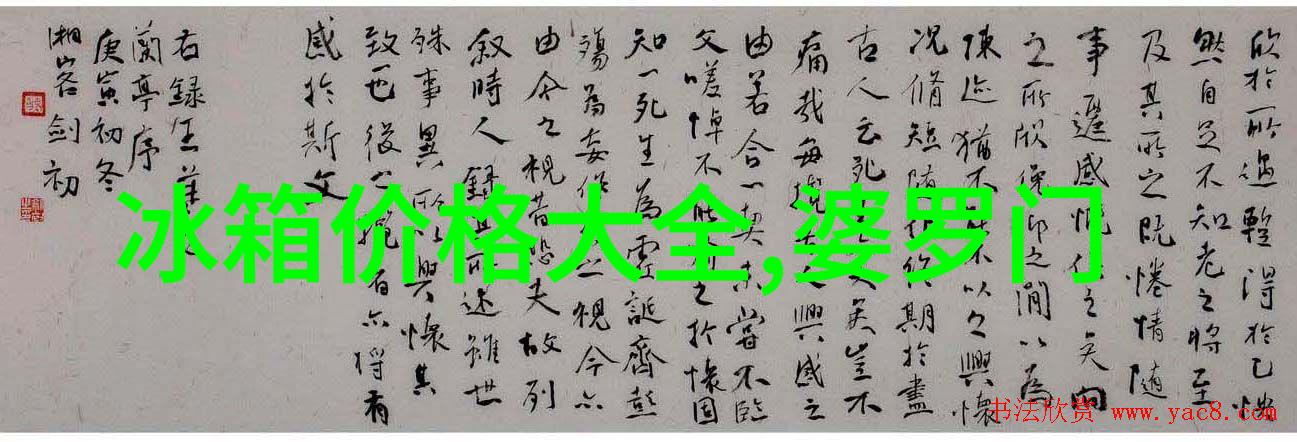 欣於所遇暫得於己快
然自足不知老之將至
及其所之既惓情隨
事遷感慨係之矣向
之所欣俛仰之間以為
陳迹猶不能不以之興懷
況脩短隨化終期於盡
古人云死生亦大矣豈不
痛哉每攬昔人興感之
由若合一契未嘗不臨
文嗟悼不能喻之於懷固
知一死生為虛誕齊彭
殤為妄作後之視今亦
由今之視昔悲夫故列
敘時人錄其所述雖世
殊事異所以興懷其
致一也後之攬者亦將有
感於斯文
右錄王羲之
蘭亭序
庚寅初冬
湘客劍初
冰箱价格大全,婆罗门
书法欣赏 www.yac8.com